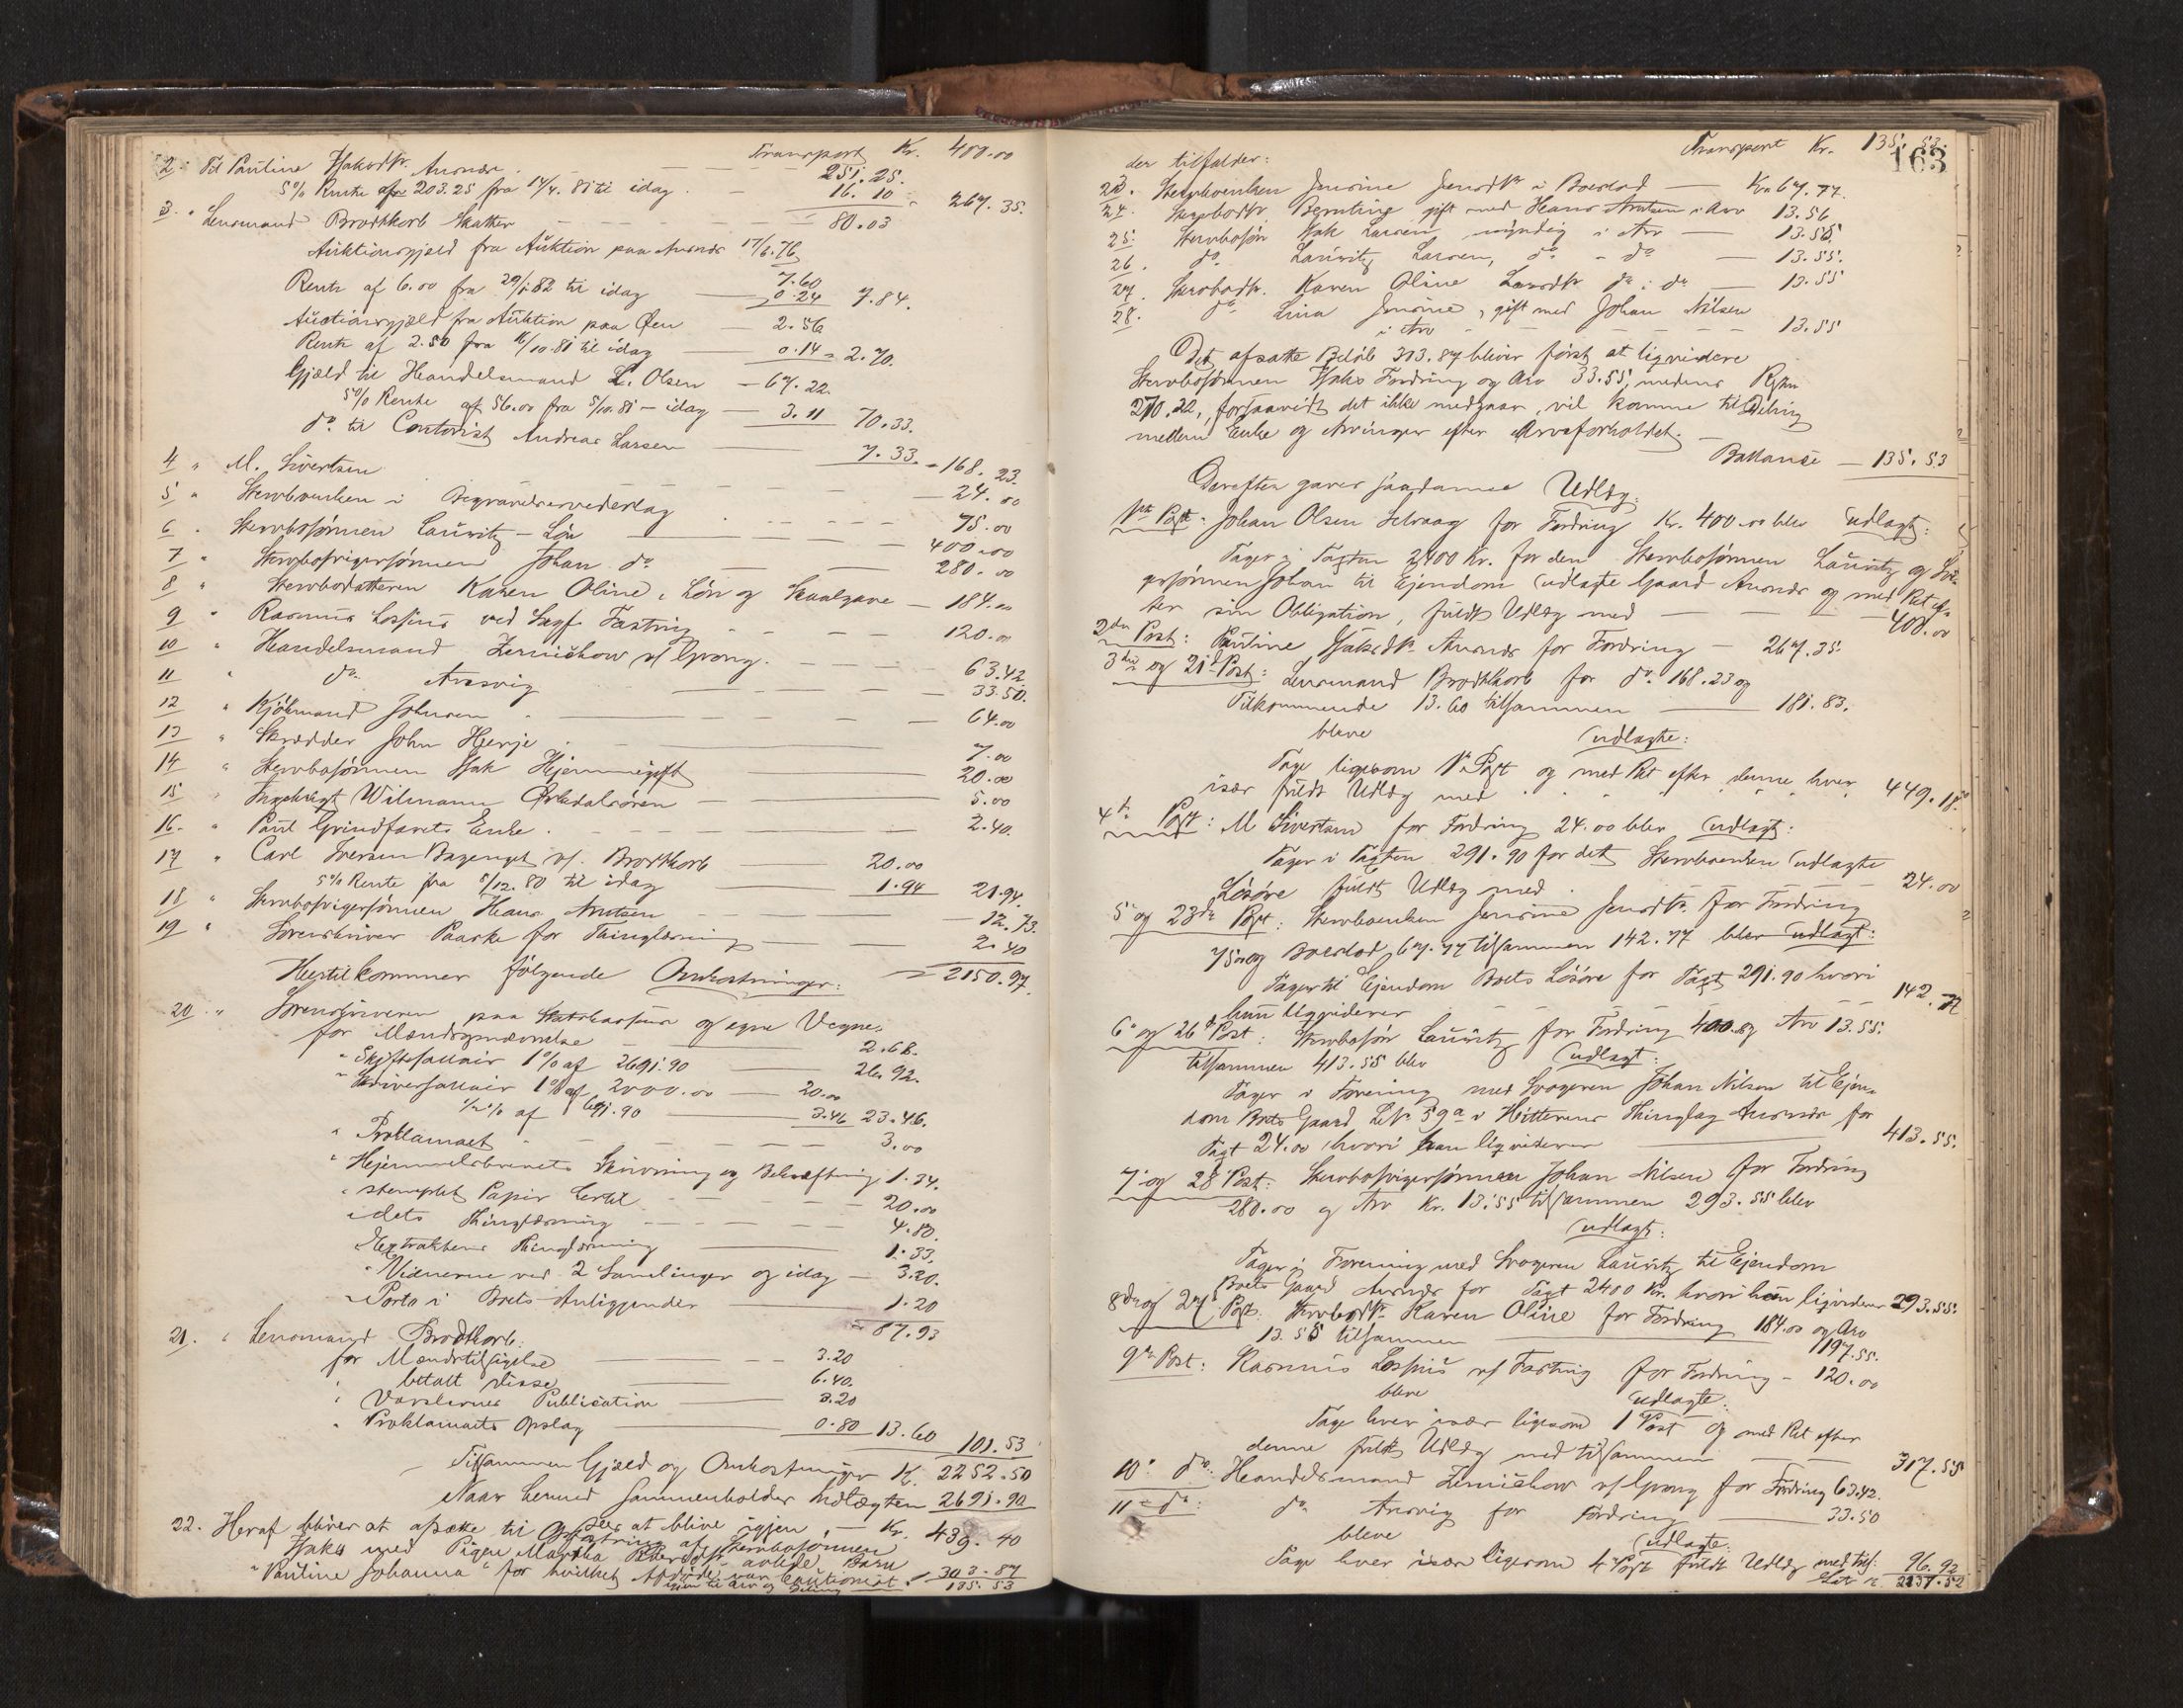 Transport Kr. 400.00
2. Til Pauline Isaksdtr. Ansnæs. 251.25.
5% Rente af 203.25 fra 14/4. 81 til idag. 16.10 " 267.35.
3. " Lensmand Brodtkorb Skatter 80.03
Auktionsgjæld fra Auktion paa Ansnæs 17/6.76
7.60
Rente af 6.00 fra 29/1.82 til idag 0.24 7.84.
Auctionsgjæld fra Auktion paa Øen 2.56
Rente af 2.50 fra 16/10.81 til idag 0.14 = 2.70.
Gjæld til Handelsmand L. Olsen 67.22.
5% Rente af 56.00 fra 5/10.81 - idag 3.11 70.33.
do. til Contorist Andreas Larsen 7.33. = 168.23.
4 " M. Sivertsen 24.00
5 " Stervboenken i Begravelsesvederlag 75.00
6 " Stervbosønnen Lauritz - Løn 400.00
7 " Stervbosvigersønnen Johan do 280.00
8 " Stervbodatteren Karen Oline, Løn og Skaalgave 184.00
9 " Rasmus Lossius ved Sagf. Fasting 120.00
10 " Handelsmand Zernichow v/ Grong. 63.42
11 " do. Aresvig 33.50.
12 " Kjøbmand Johnsen 64.00
13 " Skrædder John Herje 7.00
14 " Stervbosønnen Isak Hjemmegift 20.00
15 " Wilmann Ørkedalsøren 5.00
16. " Paul Grindfarets Enke. 2.40.
17 " Carl Iversen v/. Brodtkorb 20.00
5% Rente fra 5/12.80 til idag 1.94 21.94.
18 " Stervbosvigersønnen Hans Arntsen 12.73.
19 " Sorenskriver Paaske for Thinglæsning 2.40
Hertil kommer følgende Omkostninger: = 2150.97.
20. " Sorenskriveren paa Statskassens og egne Vegne.
for Mændsopnævnelse 2.68.
" Skiftesallair 1% af 2691.90 26.92.
" Skriversallair 1% af 2000.00 20.00
1/2% af 691.90 3.46 23.46.
" Proklamaet 3.00
" Hjemmelsbrevets Skrivning og Bekræftning 1.34.
" stemplet Papir hertil 20.00
" dets Thinglæsning 4.80.
" Extraktens Thinglæsning 1.33.
" Vidnerne ved 2 Samlinger og idag 3.20.
" Porto i Boets Anliggender 1.20
87.93
21. " Lensmand Brodtkorb:
for Mændstilsigelse 3.20
" betalt disse 6.40.
" Varslernes Publication 3.20
" Proklamaets Opslag 0.80 13.60 101.53
Tilsammen Gjæld og Omkostninger Kr. 2252.50
Naar hermed sammenholdes Indtægten 2691.90
sees at blive igjen, Kr. 439.40
22. Heraf bliver at afsætte til Opfostring af Stervbosønnen
Isaks med Pigen Martha avlede Barn
"Pauline Johanna" for hvilket Afdøde var Cautionist. 303.87
igjen til Arv og Deling 135.53
163
Transport Kr. 135.53.
der tilfalder:
23. Stervboenken Jensine Jensdtr i Boeslod Kr. 67.77.
24. Stervbodtr. Berntine gift med Hans Arntsen i Arv 13.56
25. Stervbosøn Isak Larsen, myndig i Arv 13.55.
26. do. Lauritz Larsen, do - do 13.55.
27. Stervbodtr. Karen Oline Larsdtr do i do 13.55
28. do Lina Jensine, gift med Johan Nilsen
i Arv 13.55
Det afsatte Beløb 303.87 bliver først at liqvidere
Stervbosønnen Isaks Fordring og Arv 33.55, medens Resten
270.32, forsaavidt det ikke medgaar, vil komme til Deling
mellem Enke og Arvinger efter Arveforholdet.
Ballance 135.53
Derefter gaves saadanne Udlæg:
1ste Post: Johan Olsen Selvaag for Fordring Kr. 400.00 blev udlagt:
Tager i Taxten 2400 Kr. for den Stervbosønnen Lauritz og Svi-
gersønnen Johan til Ejendom udlagte Gaard Ansnæs og med Ret ef-
ter sin Obligation, fuldt Udlæg med 400.00
2den Post: Pauline Isaksdtr Ansnæs for Fordring 267.35
3die og 21de Post: Lensmand Brodtkorb for do. 168.23 og
Tilkommende 13.60 tilsammen 181.83.
bleve udlagte:
Tage ligesom 1ste Post og med Ret efter denne hver
især fuldt Udlæg med 449.18.
4de Post: M Sivertsen for Fordring 24.00 blev udlagt:
Tager i Taxten 291.90 for det Stervboenken udlagte
Løsøre fuldt Udlæg med 24.00
5te og 23de Post: Stervboenken Jensine Jensdtr. for Fordring
75.00 og Boeslod 67.77 tilsammen 142.77 blev udlagt:
Tager til Ejendom Boets Løsøre for Taxt 291.90 hvori
hun liqviderer 142.77
6te og 26de Post: Stervbosøn Lauritz for Fordring 400.00 og Arv 13.55.
tilsammen 413.55 blev udlagt:
Tager i Forening med Svogeren Johan Nilsen til Ejen-
dom Boets Gaard L.No 59a i Hitterens Thinglag Ansnæs for
Taxt 24.00, hvori han liqviderer 413.55.
7de og 28 Post: Stervbosvigersønnen Johan Nilsen for Fordring
280.00 og Arv Kr. 13.55 tilsammen 293.55 blev
udlagt:
Tager i Forening med Svogeren Lauritz til Ejendom
Boets Gaard Ansnæs for Taxt 2400 Kr. hvori han liqviderer 293.55.
8de og 27de Post. Stervbodtr. Karen Oline for Fordring 184.00 og Arv
13.55 tilsammen 197.55.
9de Post: Rasmus Lossius v/ Fasting for Fordring - 120.00
bleve udlagte:
Tage hver især ligesom 1ste Post og med Ret efter
denne fuldt Udlæg med tilsammen 317.55
10de do: Handelsmand Zernichow v/ Grong for Fordring 63.42.
11te do: do Aresvig for Fordring 33.50
bleve udlagte:
Tage hver især ligesom 4de Post fuldt Udlæg med tils. 96.92
Lat. Kr. 2137.52